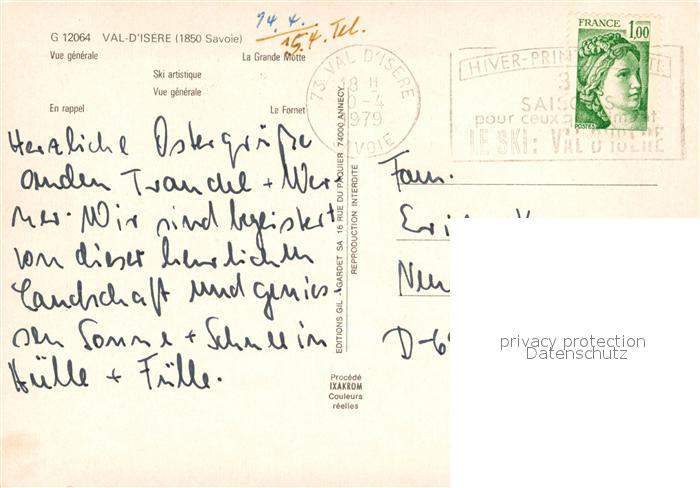 G 12064 VAL-D'ISÈRE (1850 Savoie)
Vue générale
La Grande Motte
Ski artistique
Vue générale
En rappel
Le Fornet
14. 4.
15.4. Tel.
73 VAL D'ISERE
18 H
1979
SAVOIE
FRANCE
1,00
POSTES
SAISONS
pour ceux qui aiment
LE SKI: VAL D'ISERE
Herzliche Ostergrüße
an den Trauchel + Wer-
ner. Wir sind begeistert
von dieser herrlichen
Landschaft und genies-
sen Sonne + Schnee in
Hülle + Fülle.
EDITIONS GIL - GARDET SA 16 RUE DU PAQUIER 74000 ANNECY
REPRODUCTION INTERDITE
Procédé
IXAKROM
Couleurs
réelles
Fam.
D-6
privacy protection
Datenschutz